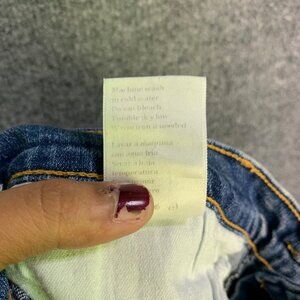 Machine wash
in cold water
Do not bleach
Tumble dry low
Warm iron if needed
Lavar a maquina
con agua fria
Secar a baja
temperatura